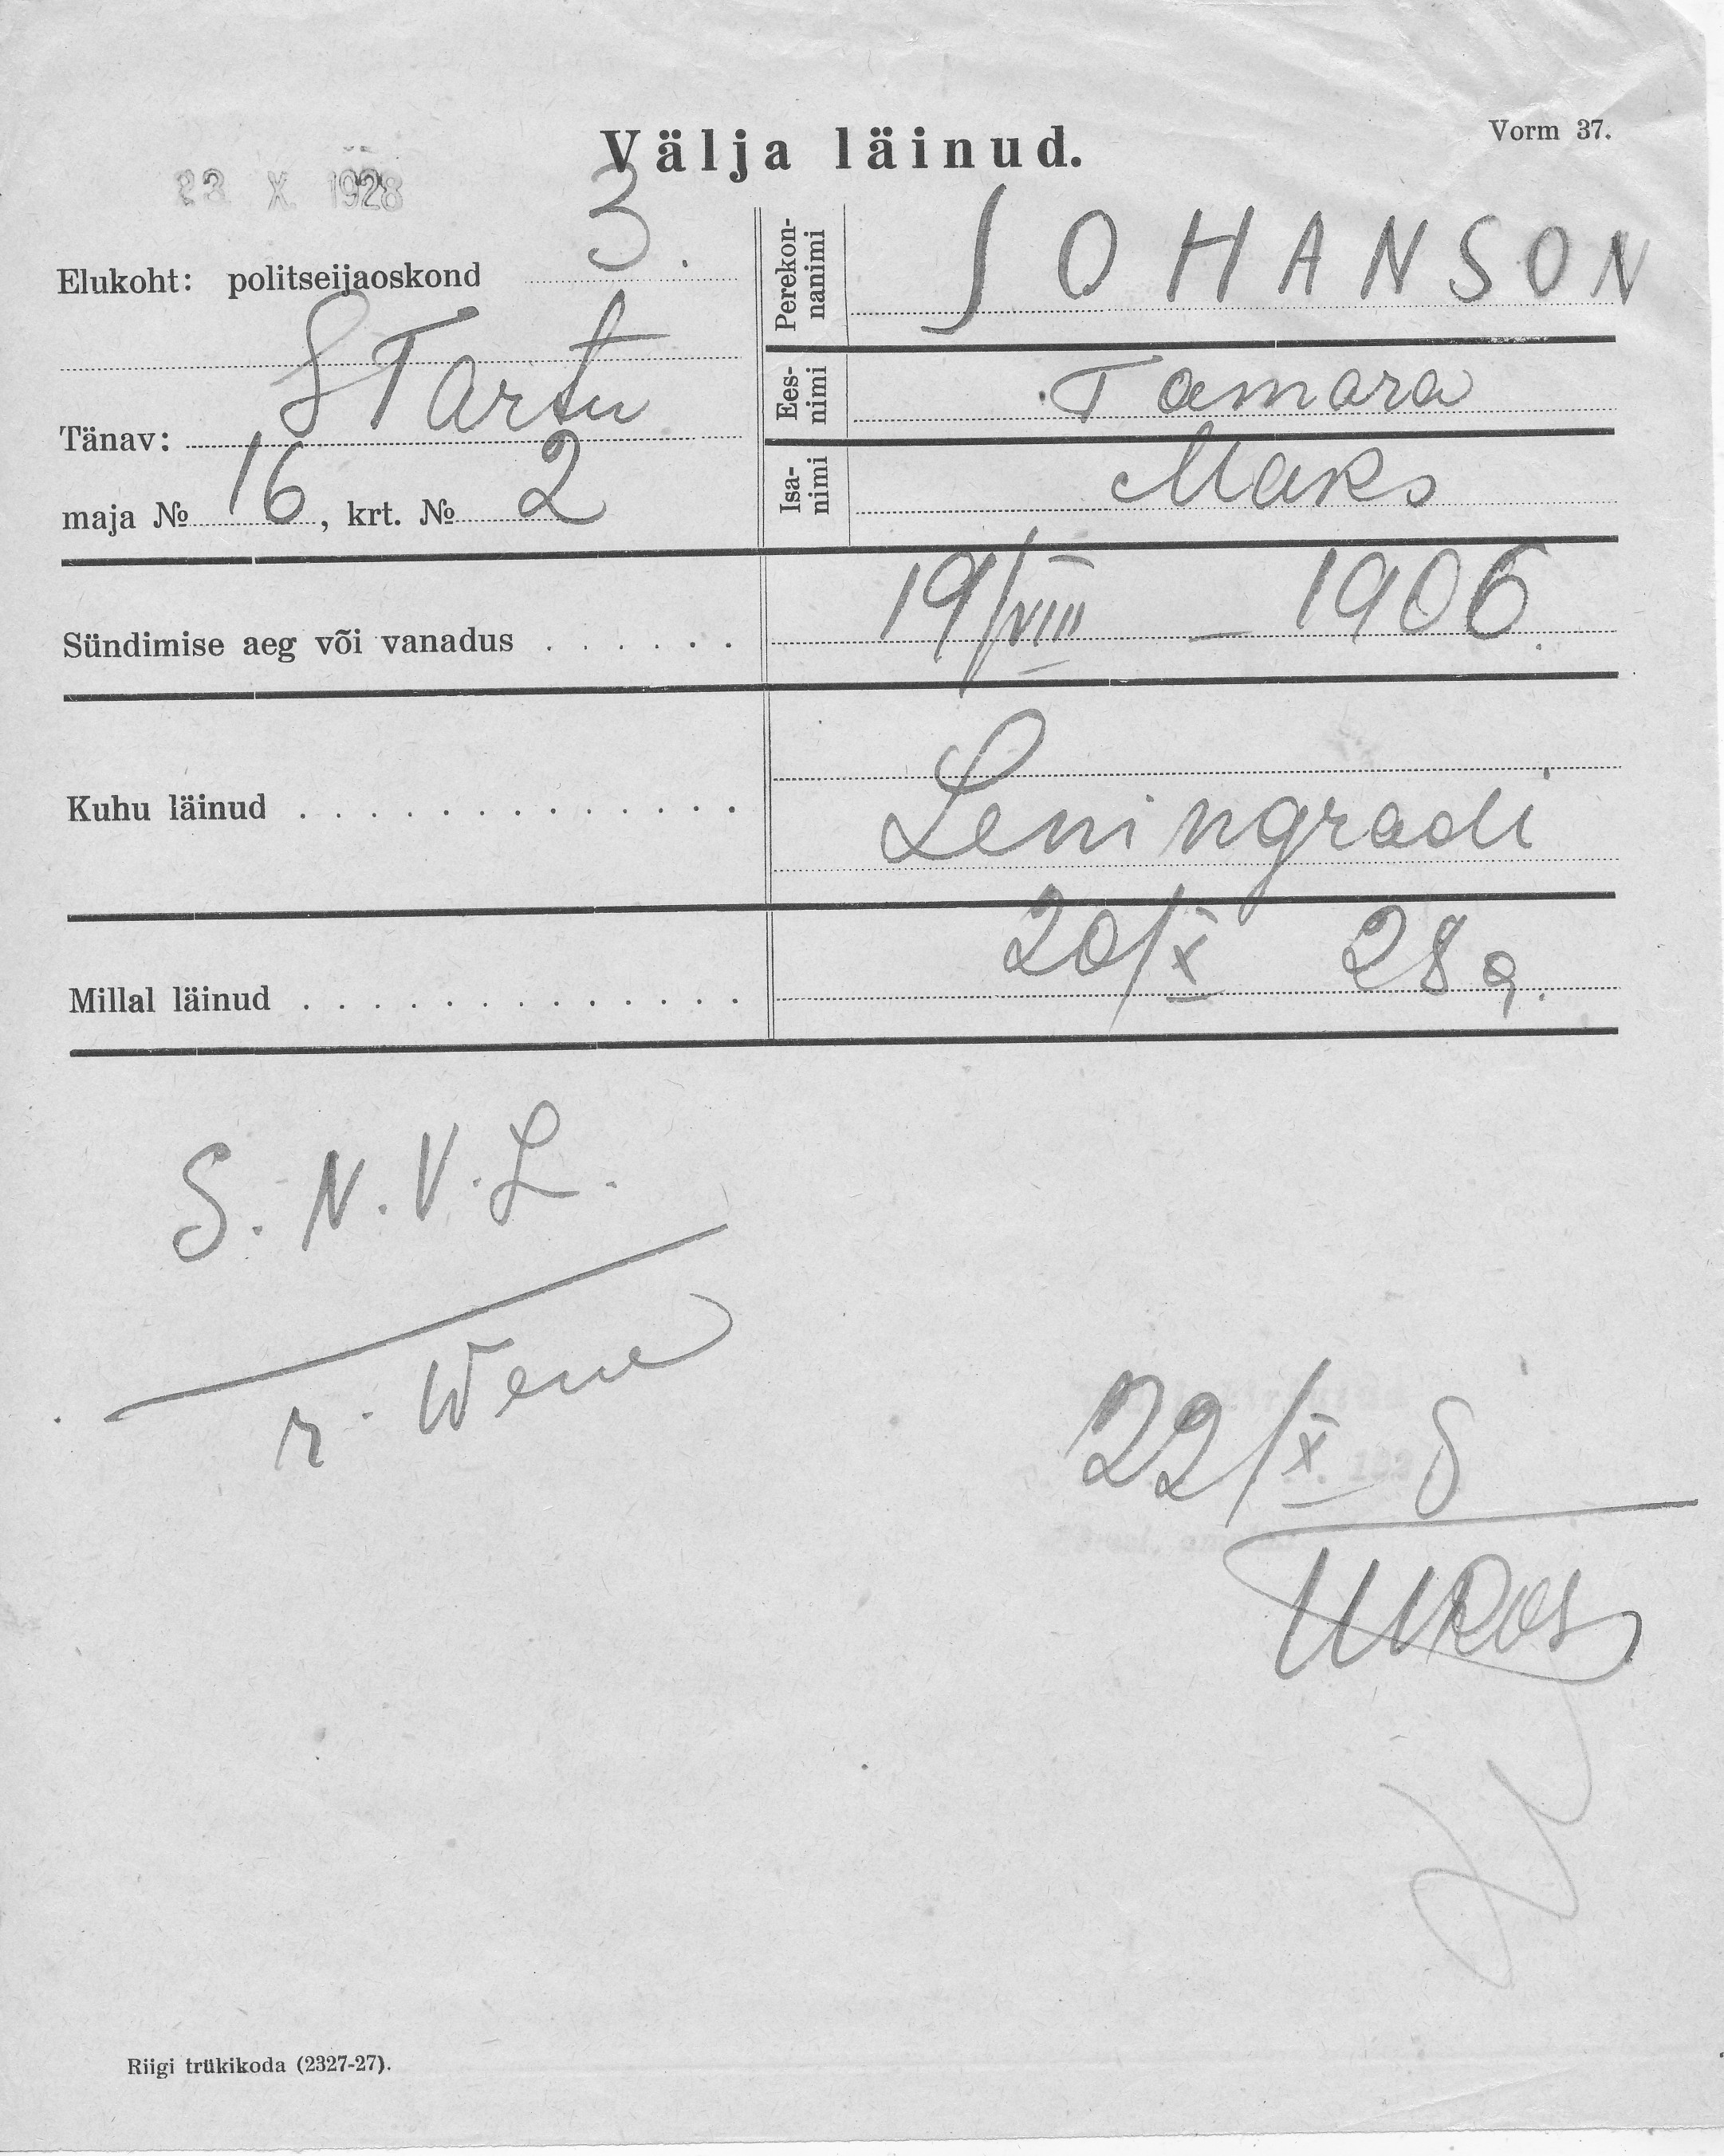 Vorm 37.
Välja läinud.
23 X. 1928
Elukoht: politseijaoskond 3.
S Tartu
Tänav:
maja № 16, krt. № 2
Perekon-
nanimi
JOHANSON
Ees-
nimi
Tamara
Isa-
nimi
Maks
Sündimise aeg või vanadus . . . . . . 19/VIII – 1906.
Kuhu läinud . . . . . . . . . . . . . Leningradi
Millal läinud . . . . . . . . . . . . . 20/X 28 a.
S. N. V. L.
r. Wene
22/X 8
Riigi trükikoda (2327-27).